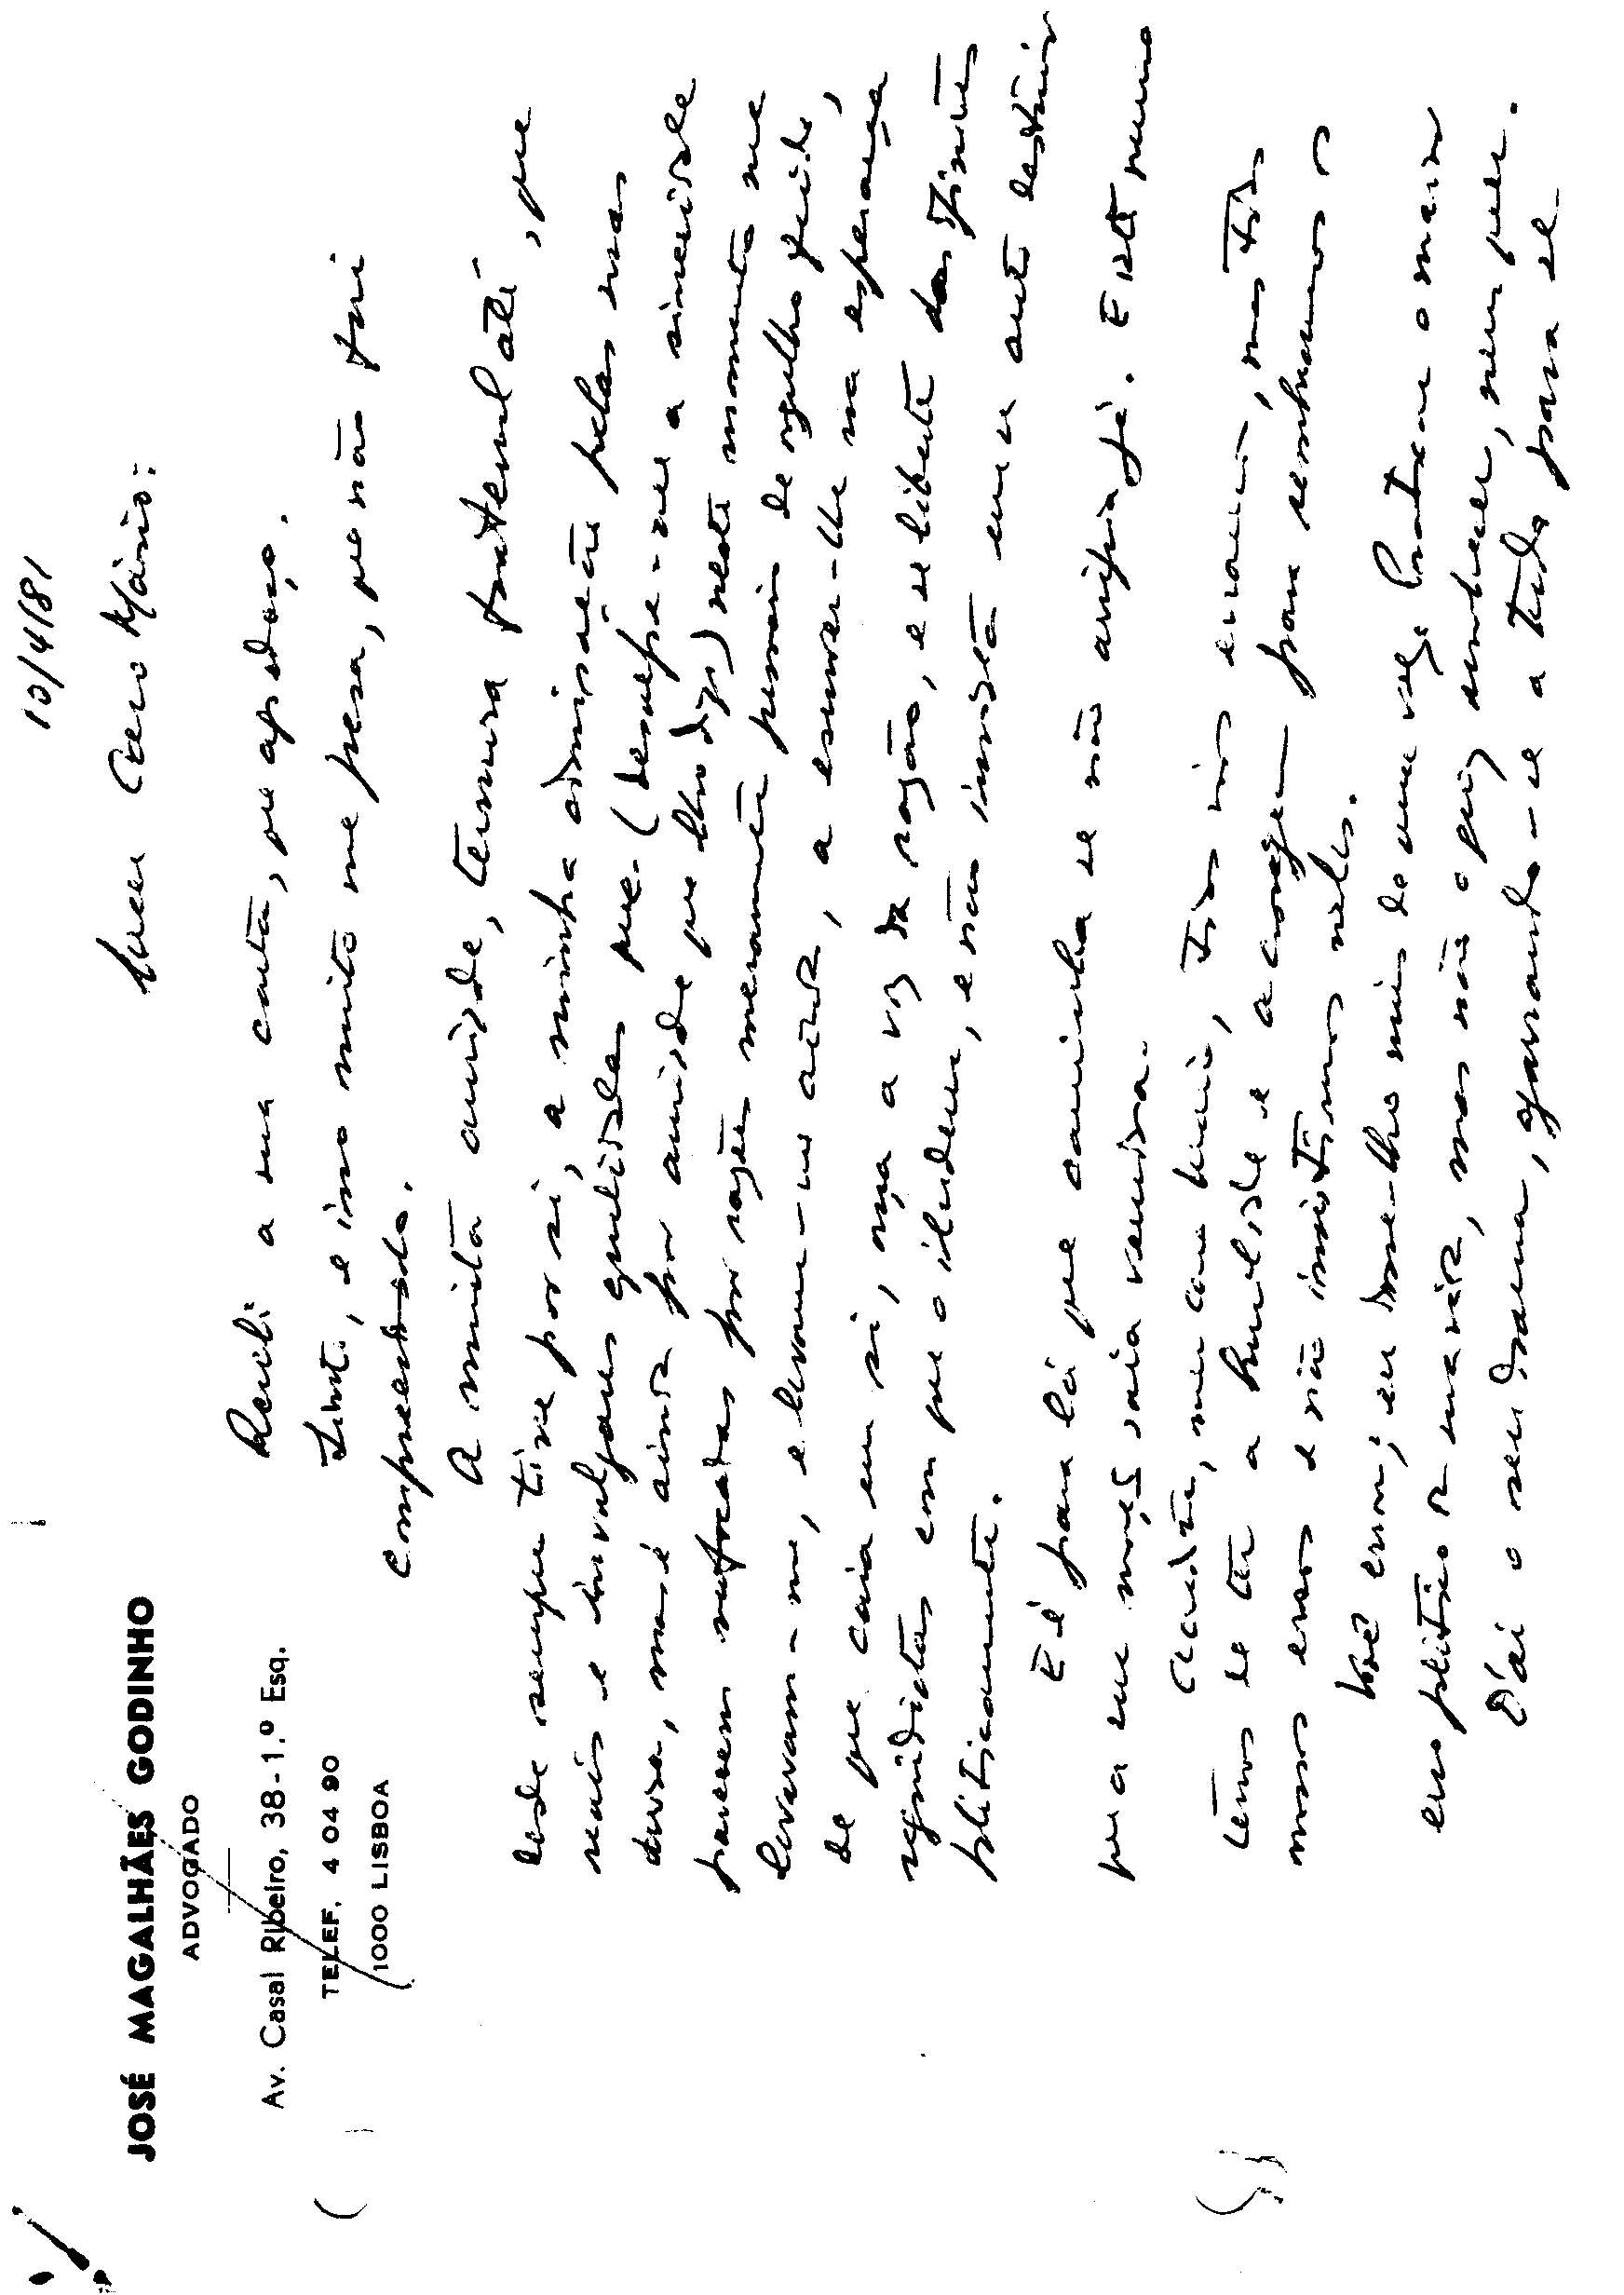 JOSÉ MAGALHÃES GODINHO
ADVOGADO
Av. Casal Ribeiro, 38-1.º Esq.
TELEF. 4 04 90
1000 LISBOA
10/4/81
Meu Caro Mário:
Recebi a sua carta, que agradeço.
Senti, e isso muito me pesa, que não fui
compreendido.
A muita amizade, ternura fraternal até, que
desde sempre tive por si, a minha admiração pelas suas
reais e invulgares qualidades que (desculpe-me a sinceridade
dura, mas é ainda por amizade que lho digo) neste momento me
parecem sufocadas por razões meramente pessoais de orgulho ferido,
levaram-me, e levam-me ainda, a escrever-lhe na esperança
de que caia em si, ouça a voz da razão, e se liberte das
com que o iludem, e não insista em se auto destruir
politicamente.
E é para lá que caminha se não arripia já. E este rumo
que a sua moção saia vencedora.
Acredite, meu caro Mário, todos nós erramos, mas todos
temos de ter a humildade e a coragem para reconhecermos os
nossos erros e não insistirmos neles.
Você errou; eu disse-lho mais do uma vez. Cometeu o maior
erro político da sua vida, mas não o quis reconhecer, nem quer.
Daí o seu drama, agarrando-se a tudo para se